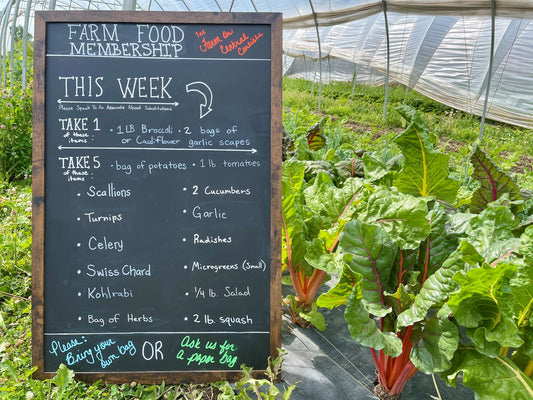 FARM FOOD
MEMBERSHIP
The Farm On
Central
Carlisle
THIS WEEK
Please Speak To An Associate About Substitutions
TAKE 1
of these items:
• 1 LB Broccoli • 2 bags of
or Cauliflower garlic scapes
TAKE 5
of these items:
• bag of potatoes • 1 lb tomatoes
• Scallions • 2 Cucumbers
• Turnips • Garlic
• Celery • Radishes
• Swiss Chard • Microgreens (small)
• Kohlrabi • 1/4 lb. Salad
• Bag of Herbs • 2 lb. squash
Please: Bring your own bag OR Ask us for a paper bag